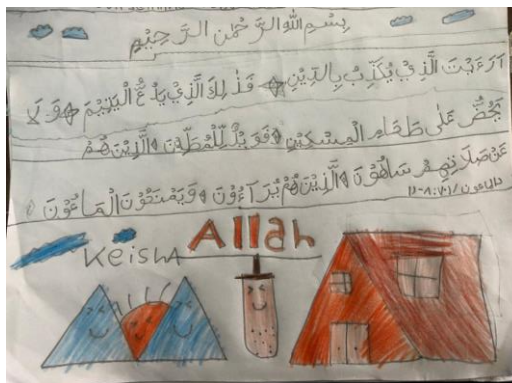 بِسْمِ اللّٰهِ الرَّحْمٰنِ الرَّحِيْمِ
اَرَءَيْتَ الَّذِيْ يُكَذِّبُ بِالدِّيْنِ فَذٰلِكَ الَّذِيْ يَدُعُّ الْيَتِيْمَ وَلَا
يَحُضُّ عَلٰى طَعَامِ الْمِسْكِيْنِ فَوَيْلٌ لِّلْمُصَلِّيْنَ الَّذِيْنَ هُمْ
عَنْ صَلَاتِهِمْ سَاهُوْنَ الَّذِيْنَ هُمْ يُرَآءُوْنَ وَيَمْنَعُوْنَ الْمَاعُوْنَ
Allah
Keisha